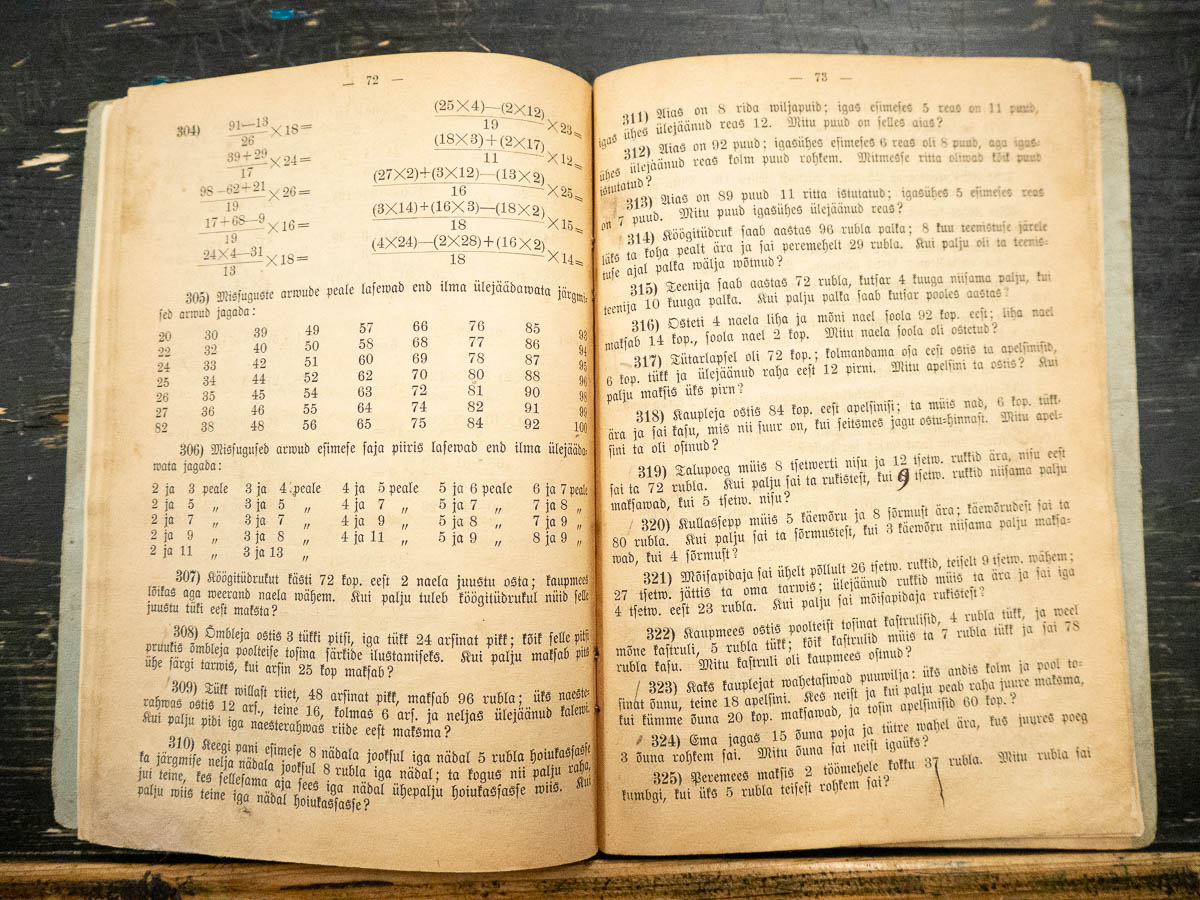 — 72 —
304) (91—13)/26 ×18=
(39+29)/17 ×24=
(98—62+21)/19 ×26=
(17+68—9)/19 ×16=
(24×4—31)/13 ×18=
((25×4)—(2×12))/19 ×23=
((18×3)+(2×17))/11 ×12=
((27×2)+(3×12)—(13×2))/16 ×25=
((3×14)+(16×3)—(18×2))/18 ×15=
((4×24)—(2×28)+(16×2))/18 ×14=
305) Missuguste arwude peale lasewad end ilma ülejäädawata järgmi-
sed arwud jagada:
20 30 39 49 57 66 76 85 93
22 32 40 50 58 68 77 86 94
24 33 42 51 60 69 78 87 95
25 34 44 52 62 70 80 88 96
26 35 45 54 63 72 81 90 98
27 36 46 55 64 74 82 91 99
82 38 48 56 65 75 84 92 100
306) Missugused arwud esimese saja piiris lasewad end ilma ülejääda-
wata jagada:
2 ja 3 peale 3 ja 4 peale 4 ja 5 peale 5 ja 6 peale 6 ja 7 peale
2 ja 5 „ 3 ja 5 „ 4 ja 7 „ 5 ja 7 „ 7 ja 8 „
2 ja 7 „ 3 ja 7 „ 4 ja 9 „ 5 ja 8 „ 7 ja 9 „
2 ja 9 „ 3 ja 8 „ 4 ja 11 „ 5 ja 9 „ 8 ja 9 „
2 ja 11 „ 3 ja 13 „
307) Köögitüdrukut kästi 72 kop. eest 2 naela juustu osta; kaupmees
lõikas aga weerand naela wähem. Kui palju tuleb köögitüdrukul nüid selle
juustu tüki eest maksta?
308) Õmbleja ostis 3 tükki pitsi, iga tükk 24 arsinat pikk; kõik selle pitsi
pruukis õmbleja poolteise tosina särkide ilustamiseks. Kui palju maksab pits
ühe särgi tarwis, kui arsin 25 kop maksab?
309) Tükk willast riiet, 48 arsinat pikk, maksab 96 rubla; üks naeste-
rahwas ostis 12 ars., teine 16, kolmas 6 ars. ja neljas ülejäänud kalewi.
Kui palju pidi iga naesterahwas riide eest maksma?
310) Keegi pani esimese 8 nädala jooksul iga nädal 5 rubla hoiukassasse
ka järgmise nelja nädala jooksul 8 rubla iga nädal; ta kogus nii palju raha,
jui teine, kes sellesama aja sees iga nädal ühepalju hoiukassasse wiis. Kui
palju wiis teine iga nädal hoiukassasse?
— 73 —
311) Aias on 8 rida wiljapuid; igas esimeses 5 reas on 11 puud,
igas ühes ülejäänud reas 12. Mitu puud on selles aias?
312) Aias on 92 puud; igasühes esimeses 6 reas oli 8 puud, aga igas-
ühes ülejäänud reas kolm puud rohkem. Mitmesse ritta oliwad kõik puud
istutatud?
313) Aias on 89 puud 11 ritta istutatud; igasühes 5 esimeses reas
on 7 puud. Mitu puud igasühes ülejäänud reas?
314) Köögitüdruk saab aastas 96 rubla palka; 8 kuu teenistuse järele
läks ta koha pealt ära ja sai peremehelt 29 rubla. Kui palju oli ta teenis-
tuse ajal palka wälja wõtnud?
315) Teenija saab aastas 72 rubla, kutsar 4 kuuga niisama palju, kui
teenija 10 kuuga palka. Kui palju palka saab kutsar pooles aastas?
316) Osteti 4 naela liha ja mõni nael soola 92 kop. eest; liha nael
maksab 14 kop., soola nael 2 kop. Mitu naela soola oli ostetud?
317) Tütarlapsel oli 72 kop.; kolmandama osa eest ostis ta apelsinisid,
6 kop. tükk ja ülejäänud raha eest 12 pirni. Mitu apelsini ta ostis? Kui
palju maksis üks pirn?
318) Kaupleja ostis 84 kop. eest apelsinisi; ta müis nad, 6 kop. tükk,
ära ja sai kasu, mis nii suur on, kui seitsmes jagu ostu-hinnast. Mitu apel-
sini ta oli ostnud?
319) Talupoeg müis 8 tsetwerti nisu ja 12 tsetw. rukkid ära, nisu eest
sai ta 72 rubla. Kui palju sai ta rukistest, kui 9 tsetw. rukkid niisama palju
maksawad, kui 5 tsetw. nisu?
320) Kullassepp müis 5 käewõru ja 8 sõrmust ära; käewõrudest sai ta
80 rubla. Kui palju sai ta sõrmustest, kui 3 käewõru niisama palju maksa-
wad, kui 4 sõrmust?
321) Mõisapidaja sai ühelt põllult 26 tsetw. rukkid, teiselt 9 tsetw. wähem;
27 tsetw. jättis ta oma tarwis; ülejäänud rukkid müis ta ära ja sai iga
4 tsetw. eest 23 rubla. Kui palju sai mõisapidaja rukistest?
322) Kaupmees ostis poolteist tosinat kastrulisid, 4 rubla tükk, ja weel
mõne kastruli, 5 rubla tükk; kõik kastrulid müis ta 7 rubla tükk ja sai 78
rubla kasu. Mitu kastruli oli kaupmees ostnud?
323) Kaks kauplejat wahetasiwad puuwilja: üks andis kolm ja pool to-
sinat õunu, teine 18 apelsini. Kes neist ja kui palju peab raha juure maksma,
kui kümme õuna 20 kop. maksawad, ja tosin apelsinisid 60 kop.?
324) Ema jagas 15 õuna poja ja tütre wahel ära, kus juures poeg
3 õuna rohkem sai. Mitu õuna sai neist igaüks?
325) Peremees maksis 2 töömehele kokku 37 rubla. Mitu rubla sai
kumbgi, kui üks 5 rubla teisest rohkem sai?